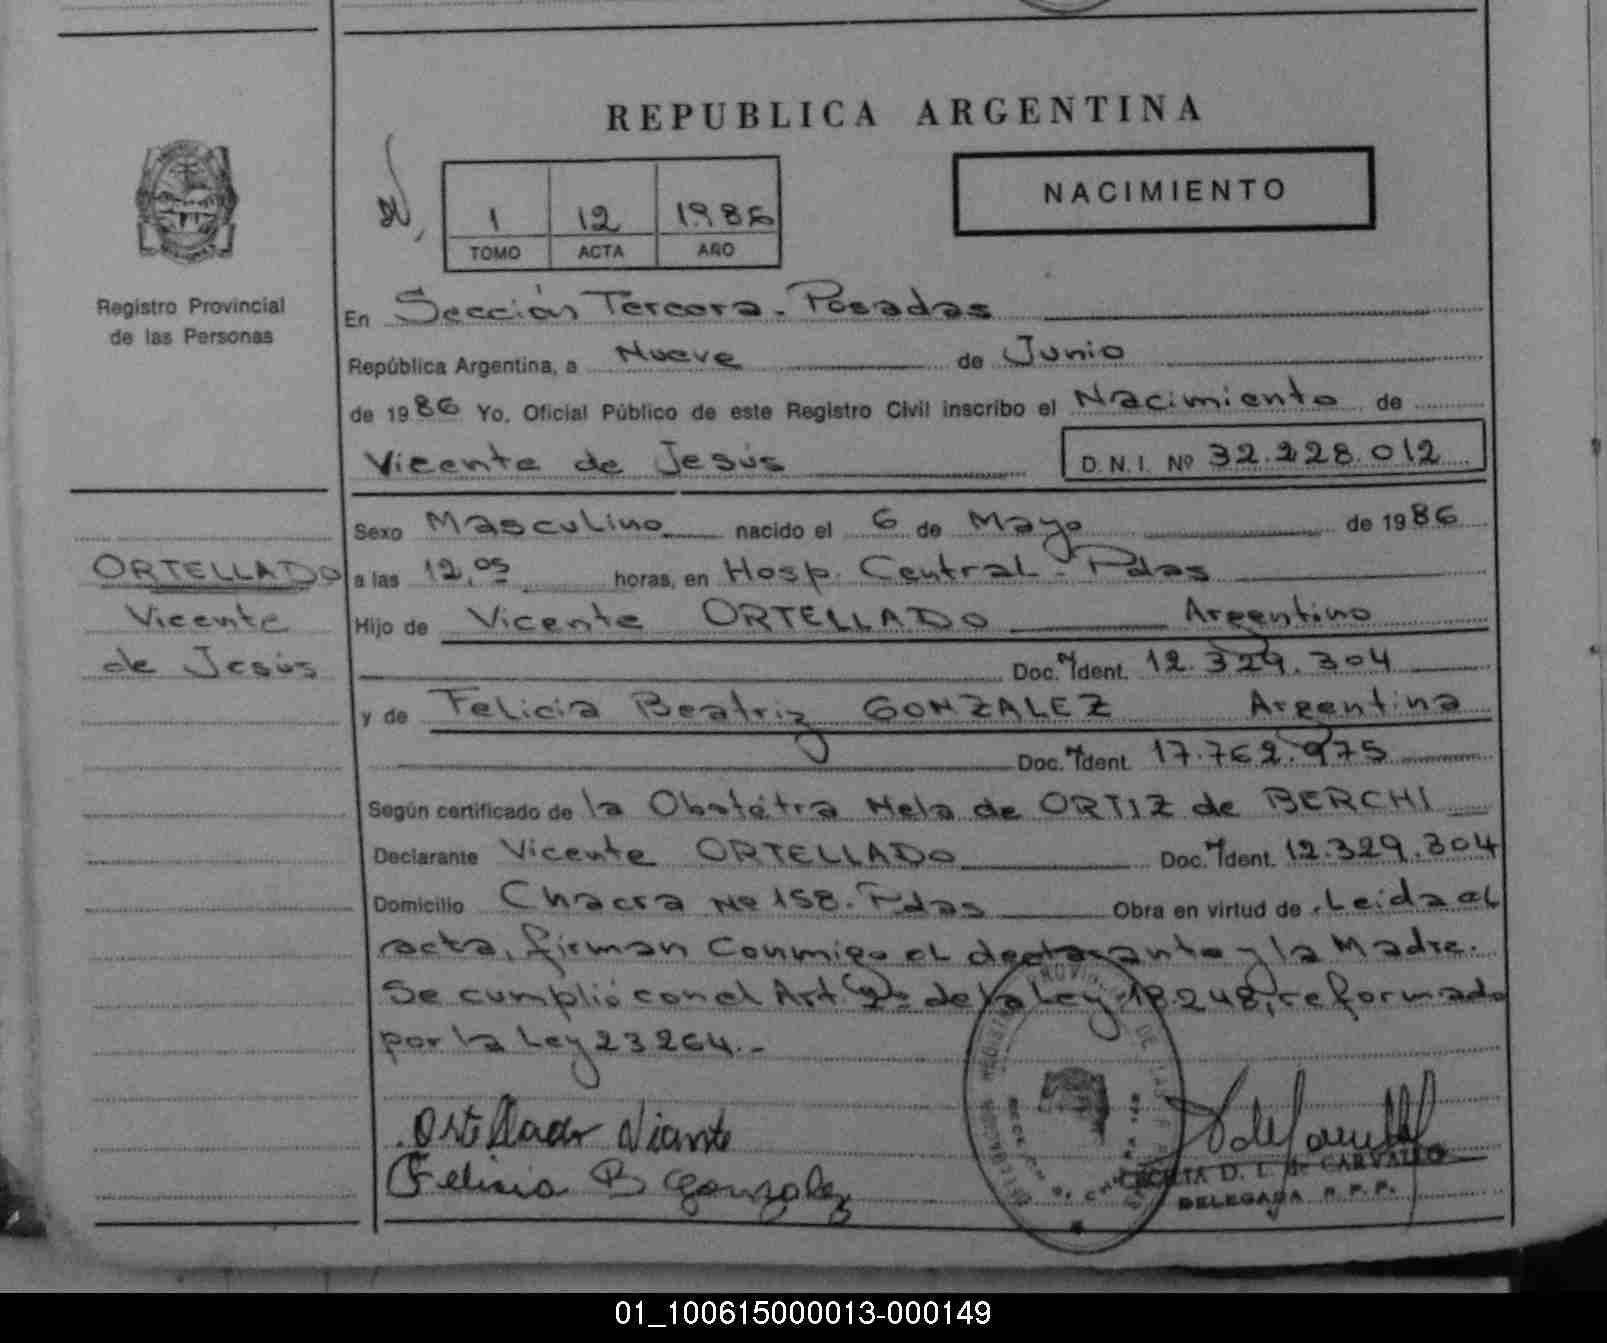 REPUBLICA ARGENTINA
NACIMIENTO
1 12 1986
TOMO ACTA AÑO
Registro Provincial
de las Personas
En Sección Tercera - Posadas
República Argentina, a Nueve de Junio
de 1986 Yo, Oficial Público de este Registro Civil inscribo el Nacimiento de
Vicente de Jesús D.N.I. Nº 32.228.012
Sexo Masculino nacido el 6 de Mayo de 1986
ORTELLADO
Vicente
de Jesús
a las 12,05 horas, en Hosp. Central - Pdas
Hijo de Vicente ORTELLADO Argentino
Doc. Ident. 12.329.304
y de Felicia Beatriz GONZALEZ Argentina
Doc. Ident. 17.762.975
Según certificado de la Obstétra Nela de ORTIZ de BERCHI
Declarante Vicente ORTELLADO Doc. Ident. 12.329.304
Domicilio Chacra Nº 158. Pdas Obra en virtud de Leida el
acta, firman conmigo el declarante y la Madre.
Se cumplió con el Art. de la Ley 18.248, reformado
por la Ley 23264.-
Ortellado Vicente
Felicia B Gonzalez
D. L. de CARVALLO
DELEGADA R.P.P.
01_100615000013-000149